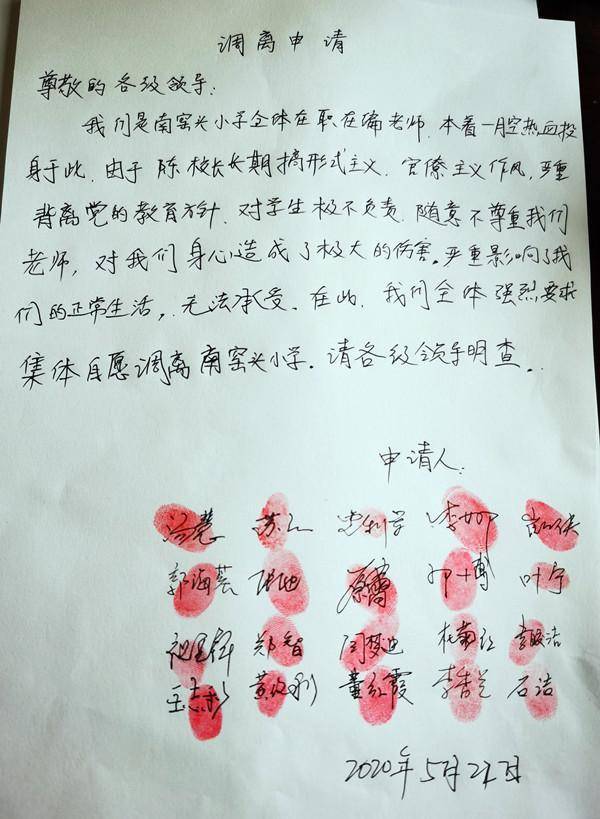 调离申请
尊敬的各级领导:
我们是南窑头小学全体在职在编老师,本着一腔热血投
身于此.由于陈校长长期搞形式主义.官僚主义作风,严重
背离党的教育方针.对学生极不负责.随意不尊重我们
老师,对我们身心造成了极大的伤害。严重影响了我
们的正常生活,.无法承受.在此.我们全体强烈要求
集体自愿调离南窑头小学.请各级领导明查..
申请人:
郭海芸 叶宁
郑智 闫梦迪
王志彩 董红霞 石洁
2020年5月21日